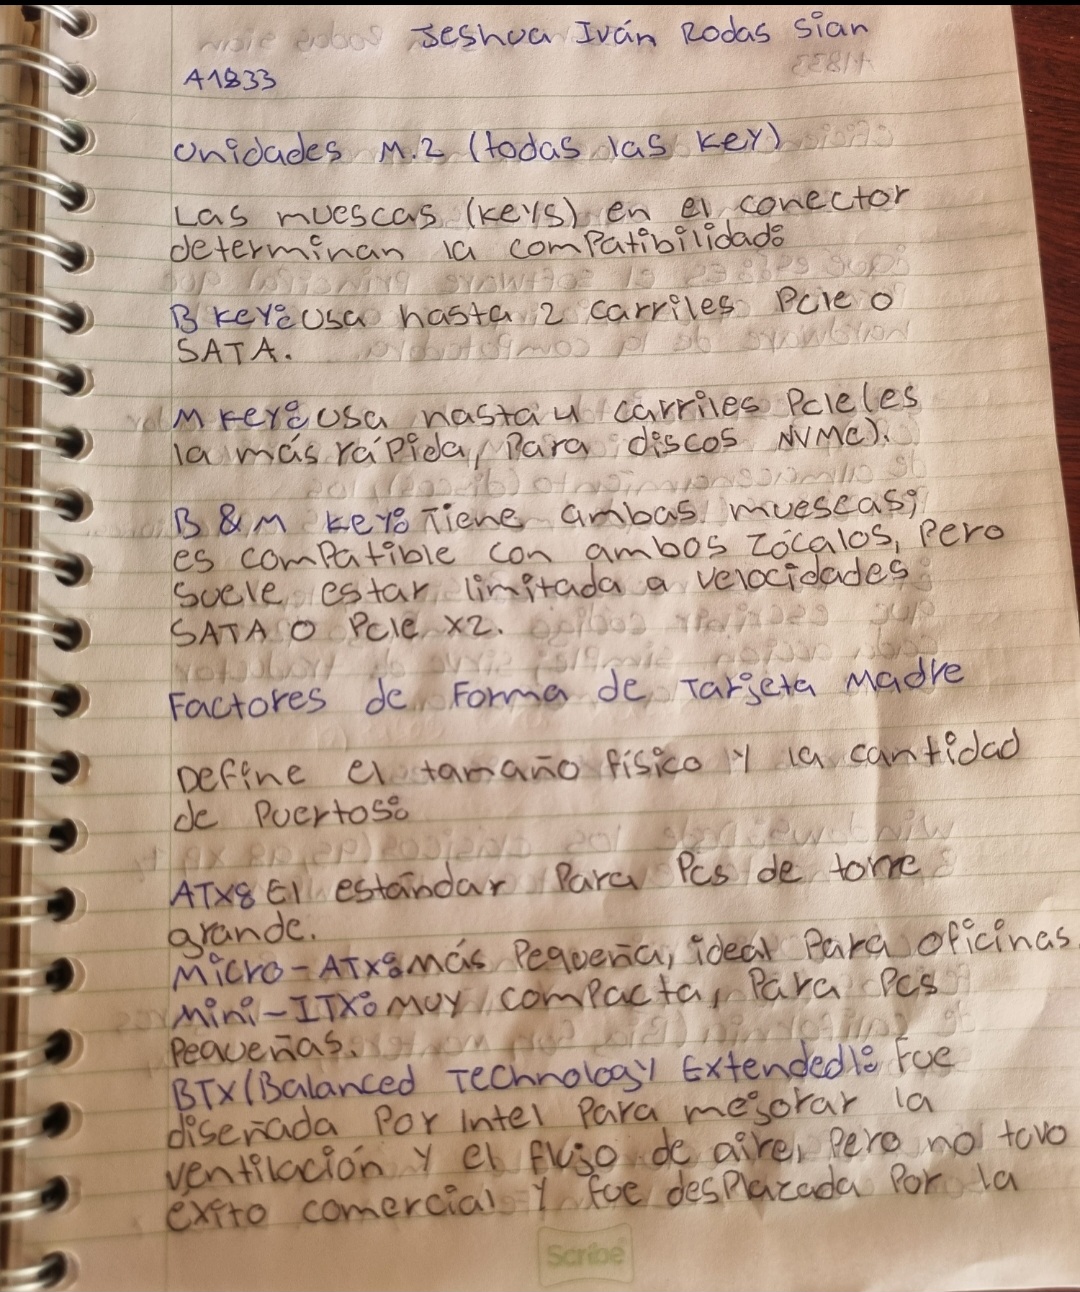 Jeshua Iván Rodas Sian
A1833
Unidades M.2 (todas las key)
Las muescas (keys) en el conector
determinan la compatibilidad:
B key: Usa hasta 2 carriles PCIe o
SATA.
M key: Usa hasta 4 carriles PCIe (es
la más rápida, Para discos NVMe).
B & M key: Tiene ambas muescas;
es compatible con ambos zócalos, Pero
suele estar limitada a velocidades
SATA o PCIe x2.
Factores de Forma de Tarjeta Madre
Define el tamaño físico y la cantidad
de Puertos:
ATX: El estándar Para Pcs de torre
grande.
Micro-ATX: más Pequeña, ideal Para oficinas.
Mini-ITX: muy compacta, Para Pcs
Pequeñas.
BTX (Balanced Technology Extended): Fue
diseñada Por Intel Para mejorar la
ventilación y el flujo de aire, Pero no tuvo
éxito comercial y fue desplazada Por la
Scribe